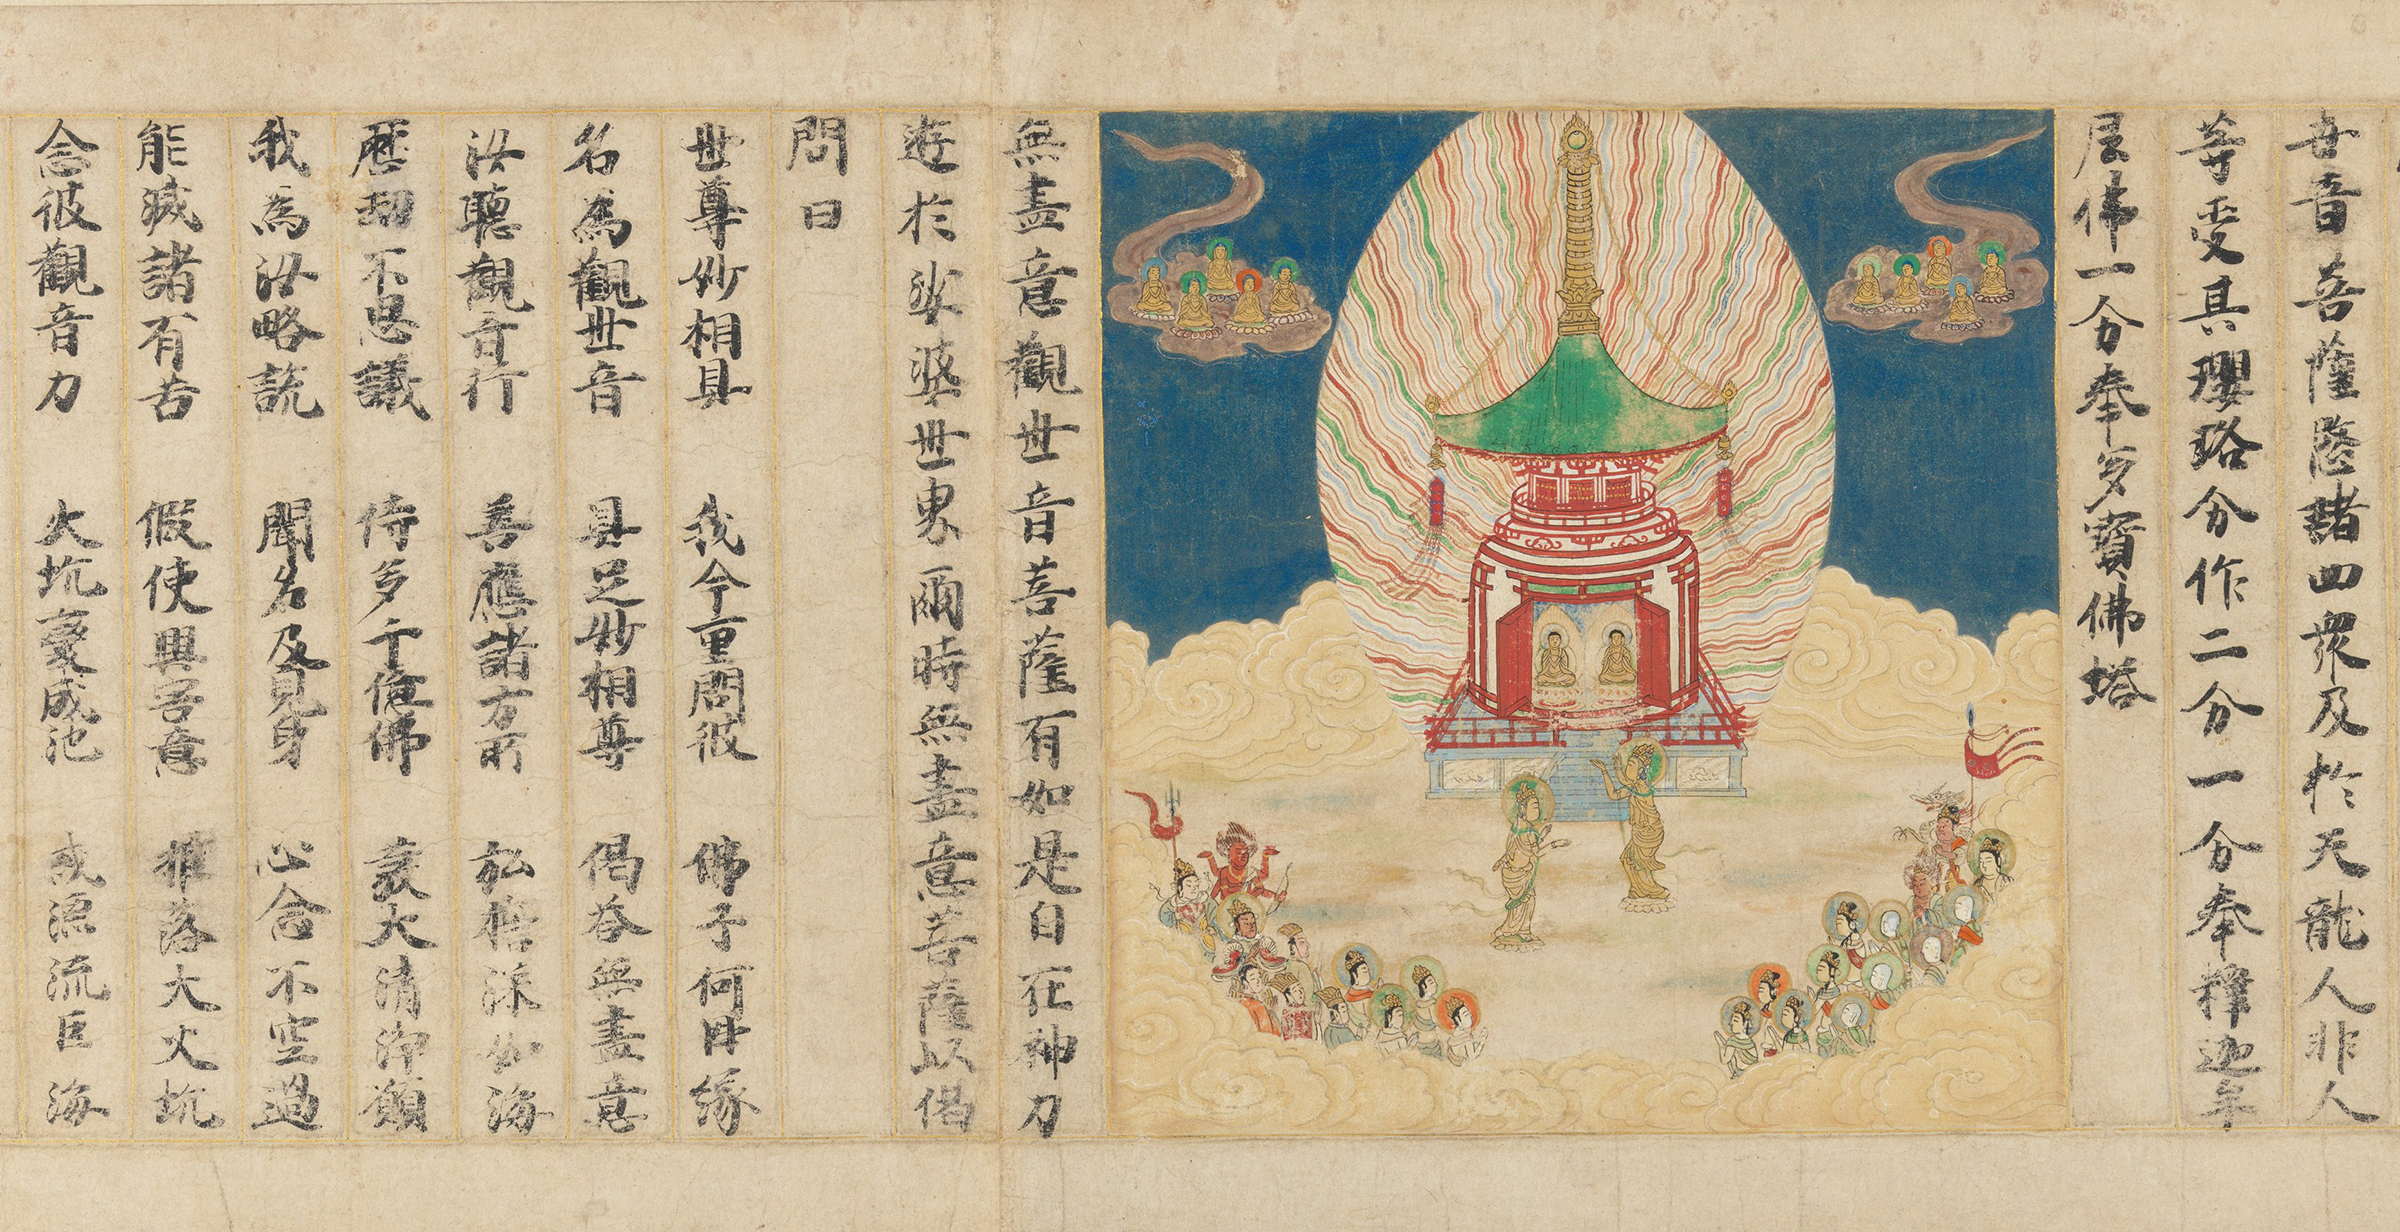 世音菩薩愍諸四衆及於天龍人非人
等受其瓔珞分作二分一分奉釋迦牟
尼佛一分奉多寶佛塔
無盡意觀世音菩薩有如是自在神力
遊於娑婆世界爾時無盡意菩薩以偈
問曰
世尊妙相具 我今重問彼 佛子何因緣
名為觀世音 具足妙相尊 偈答無盡意
汝聽觀音行 善應諸方所 弘誓深如海
歷劫不思議 侍多千億佛 發大清淨願
我為汝略說 聞名及見身 心念不空過
能滅諸有苦 假使興害意 推落大火坑
念彼觀音力 火坑變成池 或漂流巨海